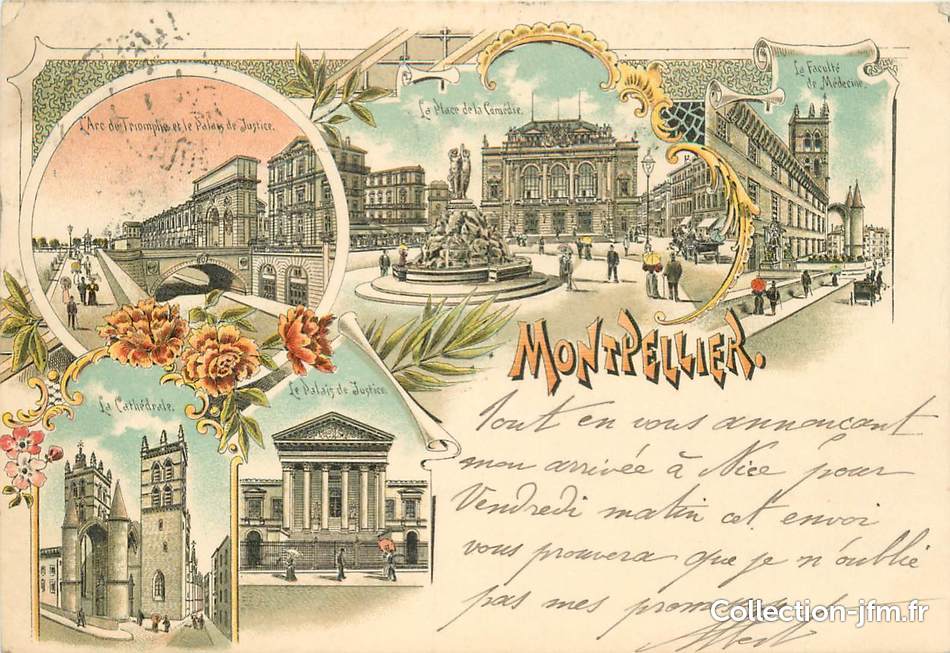 L'Arc de Triomphe et le Palais de Justice.
La Place de la Comédie.
La Faculté
de Médecine.
MONTPELLIER.
La Cathédrale.
Le Palais de Justice.
Tout en vous annonçant
mon arrivée à Nice pour
Vendredi matin cet envoi
vous prouvera que je n'oublie
pas mes promesses
Albert
Collection-jfm.fr